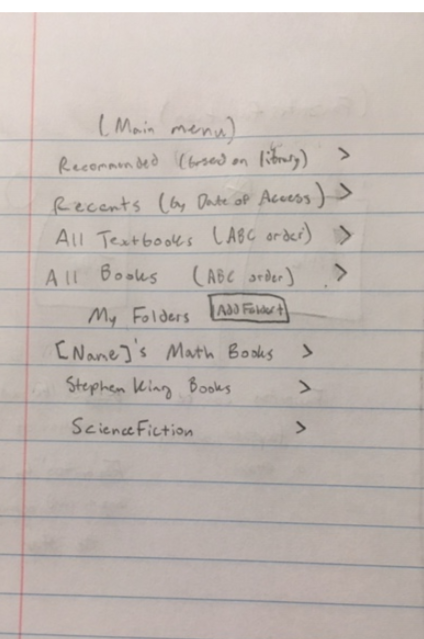 (Main menu)
Recommended (based on library) >
Recents (by Date of Access) >
All Textbooks (ABC order) >
All Books (ABC order) >
My Folders Add Folder+
[Name]'s Math Books >
Stephen King Books >
Science Fiction >